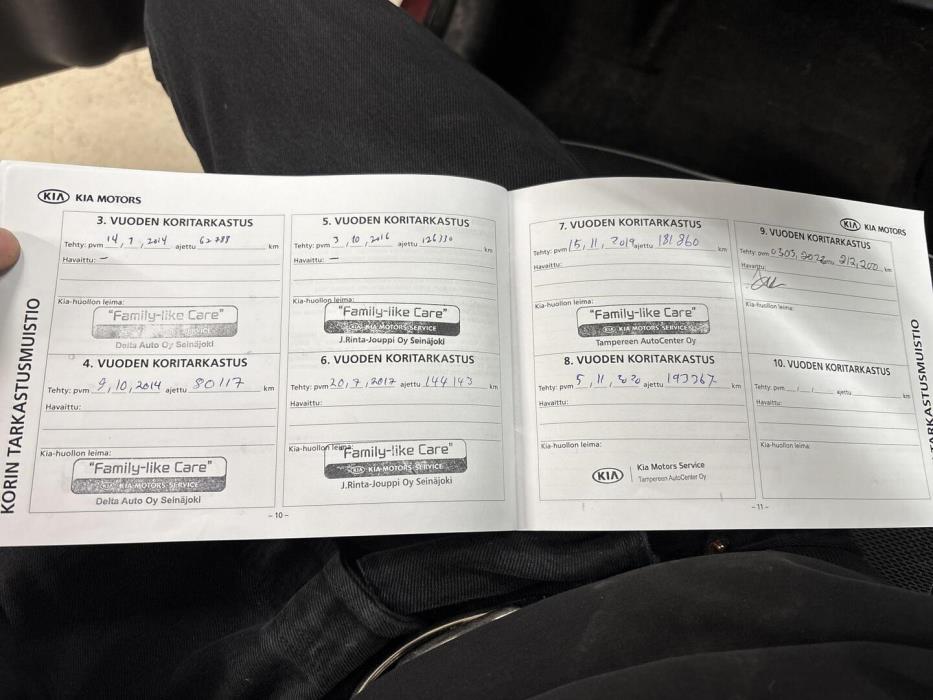 KIA KIA MOTORS
KORIN TARKASTUSMUISTIO
3. VUODEN KORITARKASTUS
Tehty: pvm 14, 1, 2014 ajettu 62788 km
Havaittu: –
Kia-huollon leima:
"Family-like Care"
KIA KIA MOTORS SERVICE
Delta Auto Oy Seinäjoki
4. VUODEN KORITARKASTUS
Tehty: pvm 9, 10, 2014 ajettu 80117 km
Havaittu:
Kia-huollon leima:
"Family-like Care"
KIA KIA MOTORS SERVICE
Delta Auto Oy Seinäjoki
5. VUODEN KORITARKASTUS
Tehty: pvm 3, 10, 2016 ajettu 126330 km
Havaittu: –
Kia-huollon leima:
"Family-like Care"
KIA KIA MOTORS SERVICE
J.Rinta-Jouppi Oy Seinäjoki
6. VUODEN KORITARKASTUS
Tehty: pvm 20, 7, 2017 ajettu 144143 km
Havaittu:
Kia-huollon leima:
"Family-like Care"
KIA KIA MOTORS SERVICE
J.Rinta-Jouppi Oy Seinäjoki
- 10 -
7. VUODEN KORITARKASTUS
Tehty: pvm 15, 11, 2019 ajettu 181860 km
Havaittu:
Kia-huollon leima:
"Family-like Care"
KIA KIA MOTORS SERVICE
Tampereen AutoCenter Oy
8. VUODEN KORITARKASTUS
Tehty: pvm 5, 11, 2020 ajettu 193367 km
Havaittu:
Kia-huollon leima:
KIA Kia Motors Service
Tampereen AutoCenter Oy
KIA KIA MOTORS
9. VUODEN KORITARKASTUS
Tehty: pvm 0303, 2022 212,200 km
Havaittu:
Kia-huollon leima:
10. VUODEN KORITARKASTUS
Tehty: pvm , , ajettu km
Havaittu:
Kia-huollon leima:
- 11 -
TARKASTUSMUISTIO